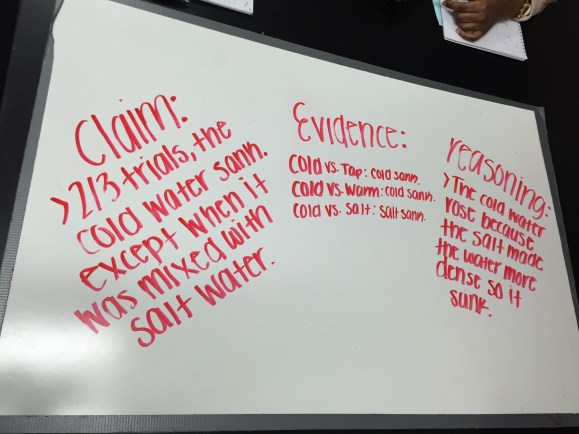 Claim:
>2/3 trials, the
cold water sank.
except when it
was mixed with
salt water.
Evidence:
Cold vs. Tap: cold sank.
Cold vs. Warm: cold sank.
Cold vs. Salt: Salt sank.
reasoning:
>The cold water
rose because
the salt made
the water more
dense so it
sunk.